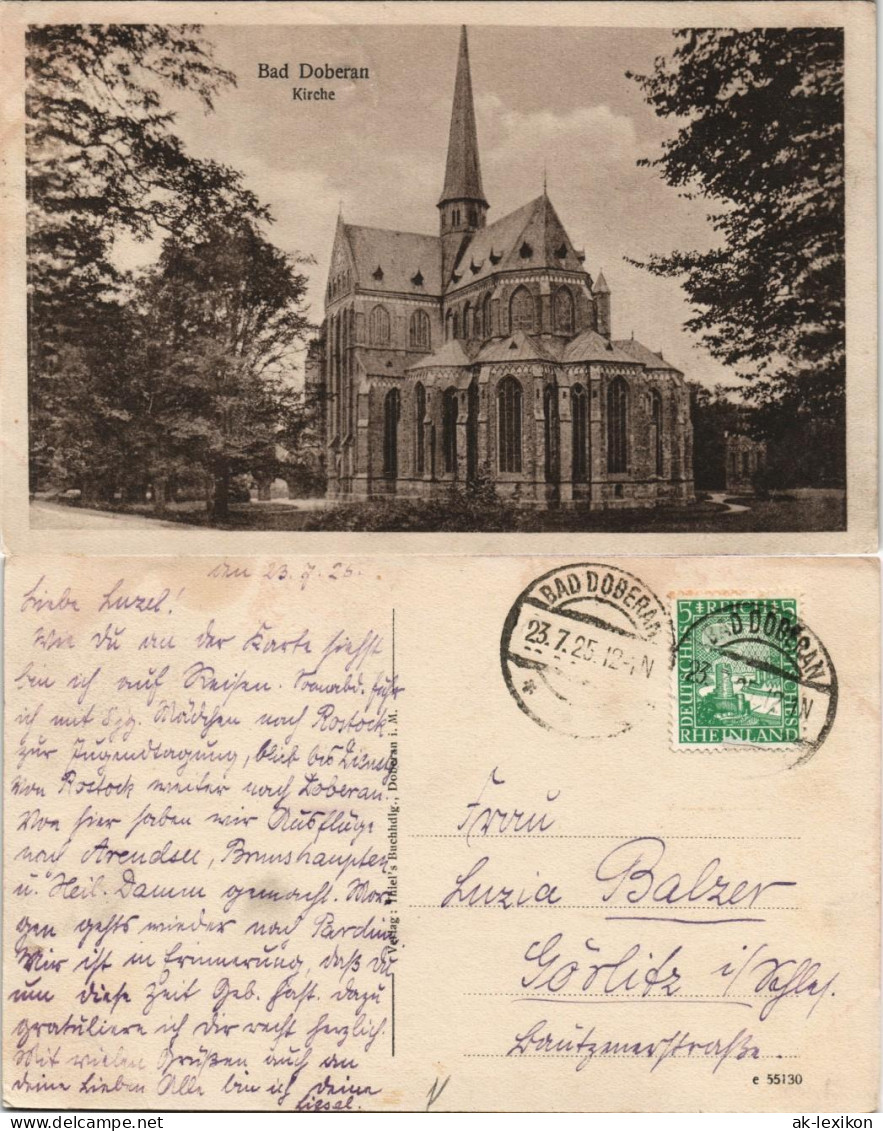 Bad Doberan
Kirche
den 23.7.25.
Liebe Luzel!
Wie du an der Karte siehst
bin ich auf Reisen. Sonnabd. fuhr
ich mit Mädchen nach Rostock
zur Jugendtagung, blieb bis Dienstg
Von Rostock weiter nach Doberan.
Von hier haben wir Ausflüge
nach Arendsee, Brunshaupten
u. Heil. Damm gemacht. Mor-
gen gehts wieder nach
Mir ist in Erinnerung, daß du
um diese Zeit Geb. hast. dazu
gratuliere ich dir recht herzlich.
Mit vielen Grüßen auch an
deine Lieben Alle bin ich deine
Liesel.
Verlag: Thiel's Buchhdlg., Doberan i. M.
BAD DOBERAN
23.7.25.12-1N
BAD DOBERAN
5 REICH 5
DEUTSCHES
RHEINLAND
Frau
Luzia Balzer
Görlitz i/Schles.
Bautzenerstraße.
e 55130
ak-lexikon